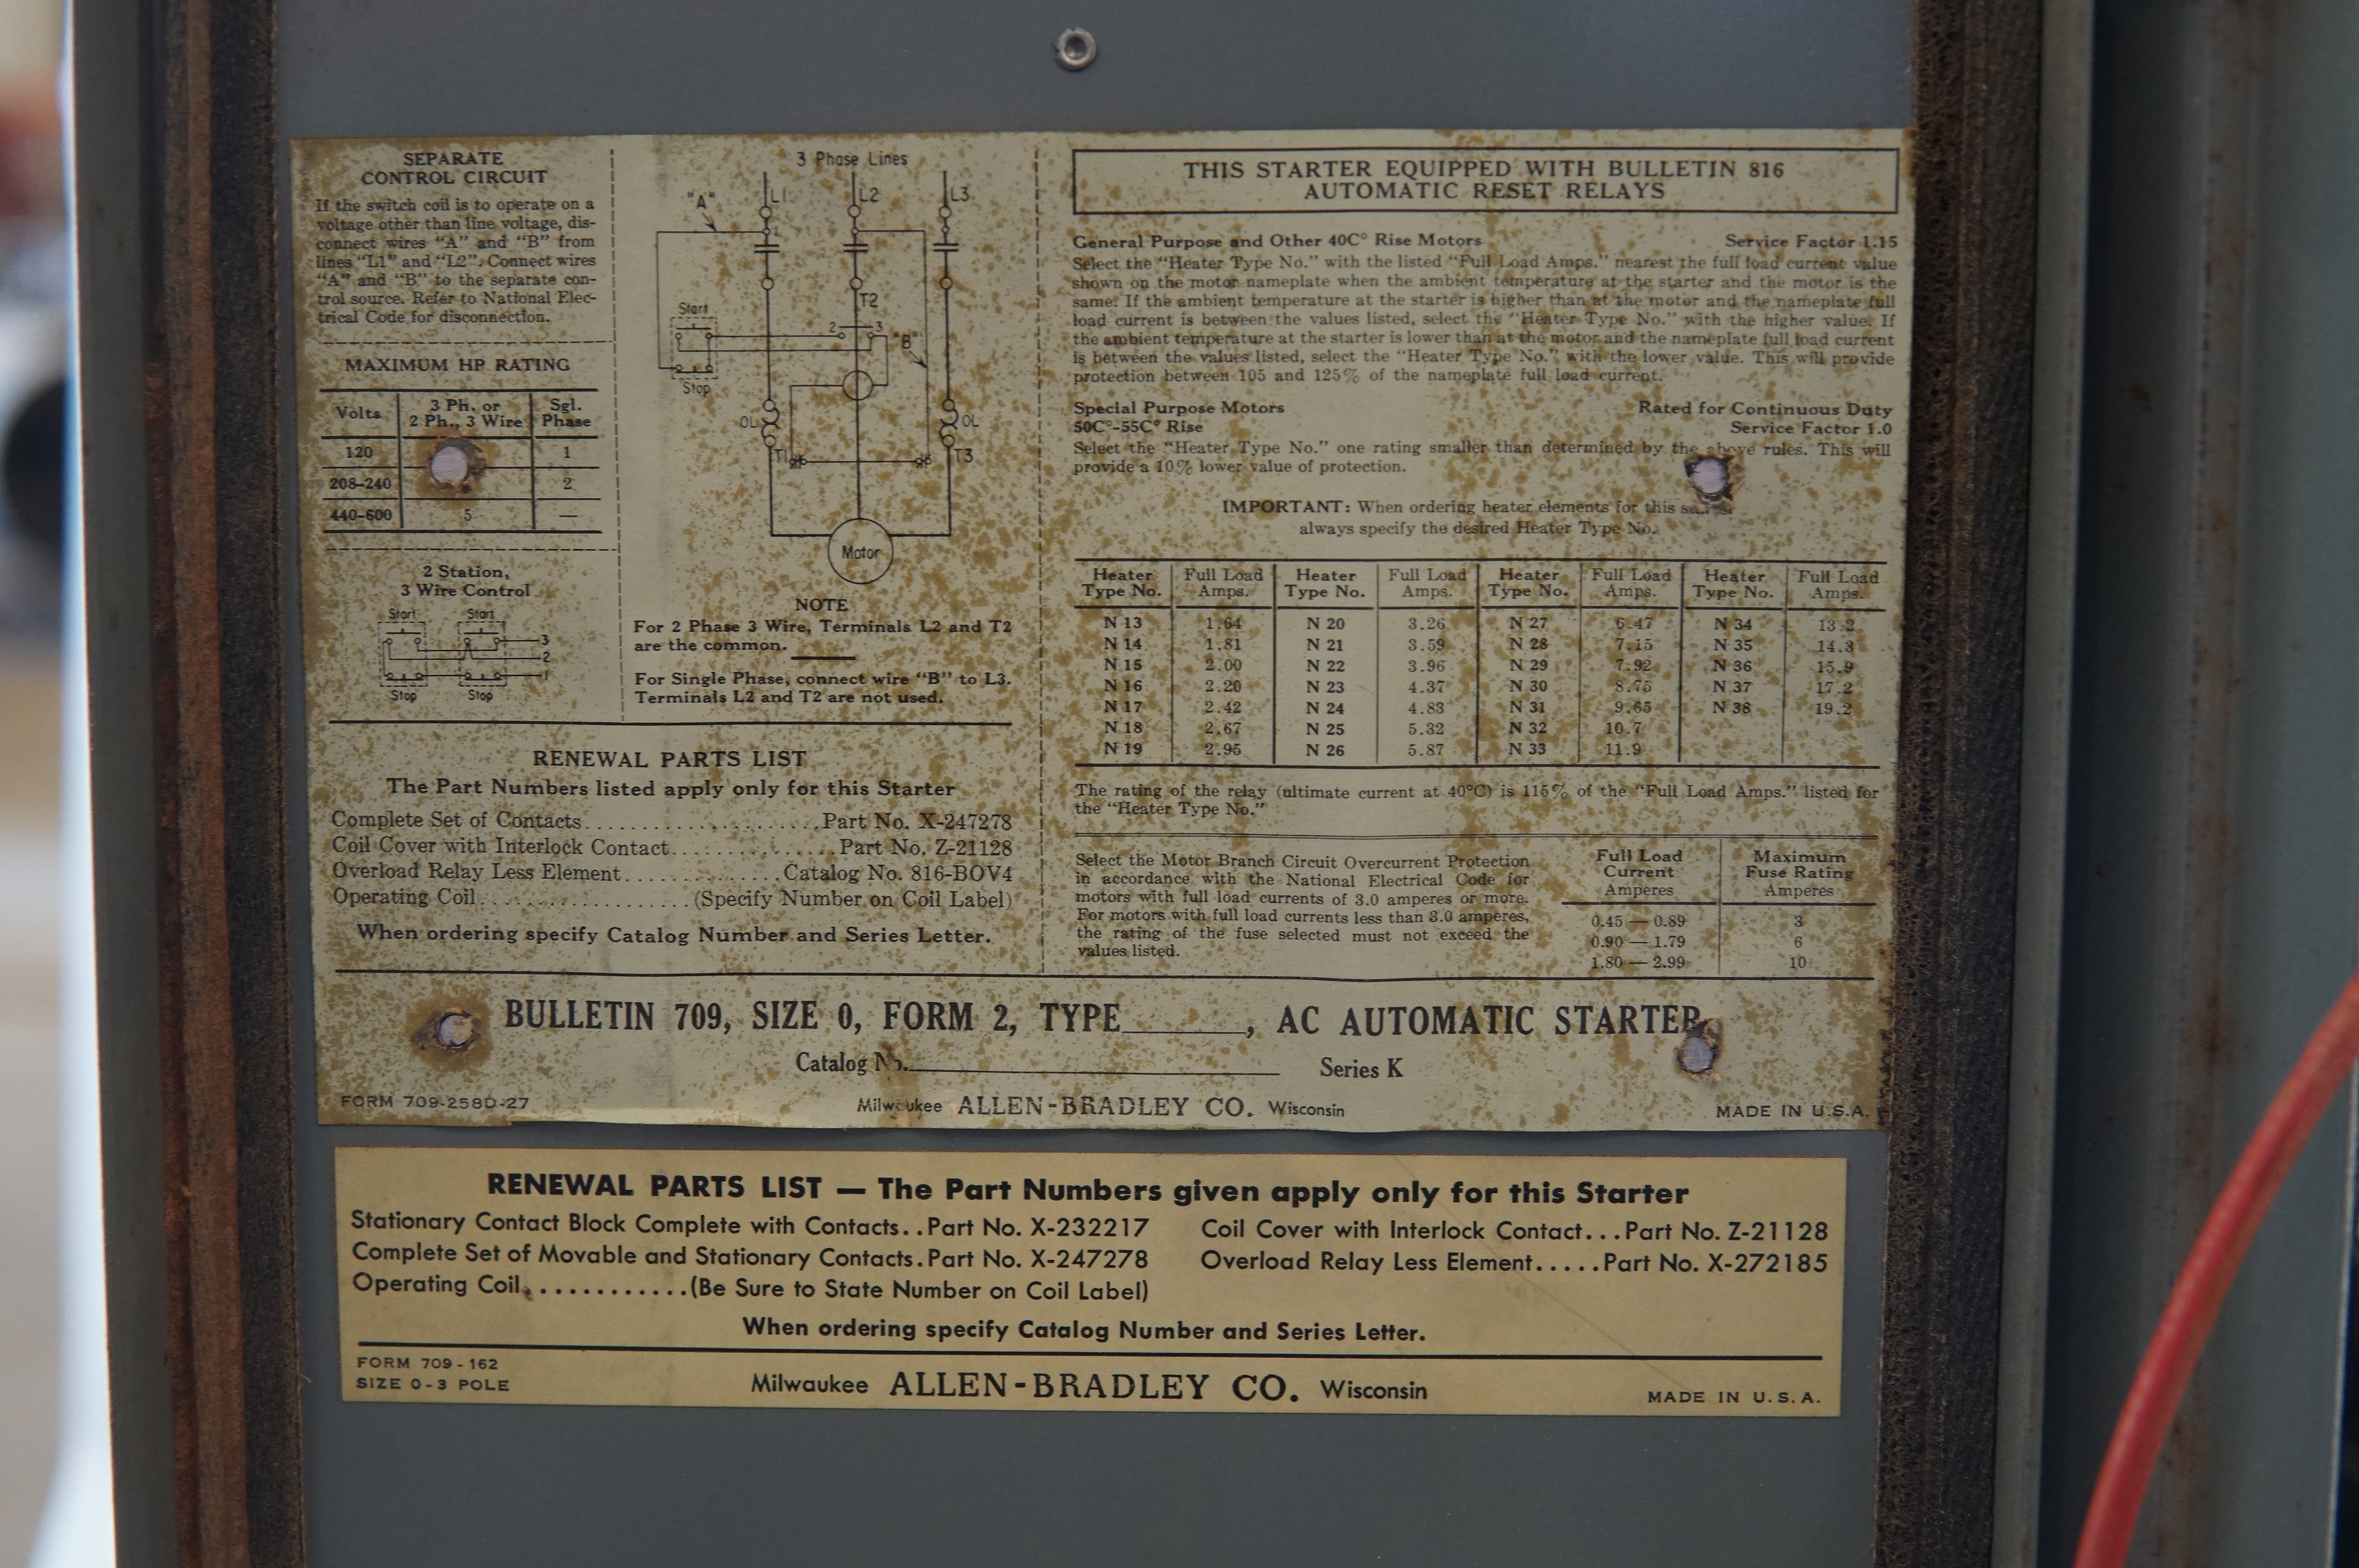 SEPARATE
CONTROL CIRCUIT
If the switch coil is to operate on a
voltage other than line voltage, dis-
connect wires "A" and "B" from
lines "L1" and "L2". Connect wires
"A" and "B" to the separate con-
trol source. Refer to National Elec-
trical Code for disconnection.
MAXIMUM HP RATING
Volts 3 Ph. or 2 Ph., 3 Wire Sgl. Phase
120 1
208-240 2
440-600 5 —
2 Station,
3 Wire Control
Start Start
3
2
1
Stop Stop
3 Phase Lines
"A" L1 L2 L3
T2
Start
2 3
"B"
Stop
OL OL
T1 T3
Motor
NOTE
For 2 Phase 3 Wire, Terminals L2 and T2
are the common.
For Single Phase, connect wire "B" to L3.
Terminals L2 and T2 are not used.
RENEWAL PARTS LIST
The Part Numbers listed apply only for this Starter
Complete Set of Contacts......................Part No. X-247278
Coil Cover with Interlock Contact...............Part No. Z-21128
Overload Relay Less Element..............Catalog No. 816-BOV4
Operating Coil....................(Specify Number on Coil Label)
When ordering specify Catalog Number and Series Letter.
THIS STARTER EQUIPPED WITH BULLETIN 816
AUTOMATIC RESET RELAYS
General Purpose and Other 40C° Rise Motors Service Factor 1.15
Select the "Heater Type No." with the listed "Full Load Amps." nearest the full load current value
shown on the motor nameplate when the ambient temperature at the starter and the motor is the
same. If the ambient temperature at the starter is higher than at the motor and the nameplate full
load current is between the values listed, select the "Heater Type No." with the higher value. If
the ambient temperature at the starter is lower than at the motor and the nameplate full load current
is between the values listed, select the "Heater Type No." with the lower value. This will provide
protection between 105 and 125% of the nameplate full load current.
Special Purpose Motors Rated for Continuous Duty
50C°-55C° Rise Service Factor 1.0
Select the "Heater Type No." one rating smaller than determined by the above rules. This will
provide a 10% lower value of protection.
IMPORTANT: When ordering heater elements for this
always specify the desired Heater Type No.
Heater Type No. Full Load Amps. Heater Type No. Full Load Amps. Heater Type No. Full Load Amps. Heater Type No. Full Load Amps.
N 13 1.64 N 20 3.26 N 27 6.47 N 34 13.2
N 14 1.81 N 21 3.59 N 28 7.15 N 35 14.3
N 15 2.00 N 22 3.96 N 29 7.92 N 36 15.9
N 16 2.20 N 23 4.37 N 30 8.75 N 37 17.2
N 17 2.42 N 24 4.83 N 31 9.65 N 38 19.2
N 18 2.67 N 25 5.32 N 32 10.7
N 19 2.95 N 26 5.87 N 33 11.9
The rating of the relay (ultimate current at 40°C) is 115% of the "Full Load Amps." listed for
the "Heater Type No."
Select the Motor Branch Circuit Overcurrent Protection
in accordance with the National Electrical Code for
motors with full load currents of 3.0 amperes or more.
For motors with full load currents less than 3.0 amperes,
the rating of the fuse selected must not exceed the
values listed.
Full Load Current Amperes Maximum Fuse Rating Amperes
0.45 — 0.89 3
0.90 — 1.79 6
1.80 — 2.99 10
BULLETIN 709, SIZE 0, FORM 2, TYPE______, AC AUTOMATIC STARTER
Catalog No.______ Series K
FORM 709-258D-27 Milwaukee ALLEN-BRADLEY CO. Wisconsin MADE IN U.S.A.
RENEWAL PARTS LIST — The Part Numbers given apply only for this Starter
Stationary Contact Block Complete with Contacts..Part No. X-232217
Complete Set of Movable and Stationary Contacts.Part No. X-247278
Operating Coil............(Be Sure to State Number on Coil Label)
Coil Cover with Interlock Contact...Part No. Z-21128
Overload Relay Less Element.....Part No. X-272185
When ordering specify Catalog Number and Series Letter.
FORM 709-162
SIZE 0-3 POLE
Milwaukee ALLEN-BRADLEY CO. Wisconsin
MADE IN U.S.A.